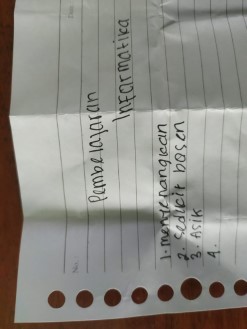 No.
Date
Pembelajaran
Informatika
1. menyenangkan
2. sedikit bosen
3. Asik
4.